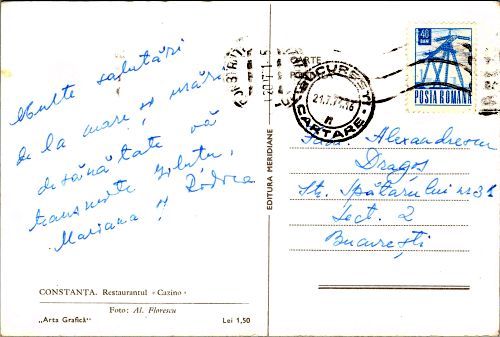 Multe salutări
de la mare și urări
de sănătate vă
transmite Miluța,
Mariana și Rodica
CONSTANȚA. Restaurantul «Cazino»
Foto: Al. Florescu
„Arta Grafică”
Lei 1,50
EDITURA MERIDIANE
BUCUREȘTI
21.7.71.16
CARTARE
40 BANI
POSTA ROMANA
Fam. Alexandrescu
Dragoș
Str. Spătarului nr 31
Sect. 2
București